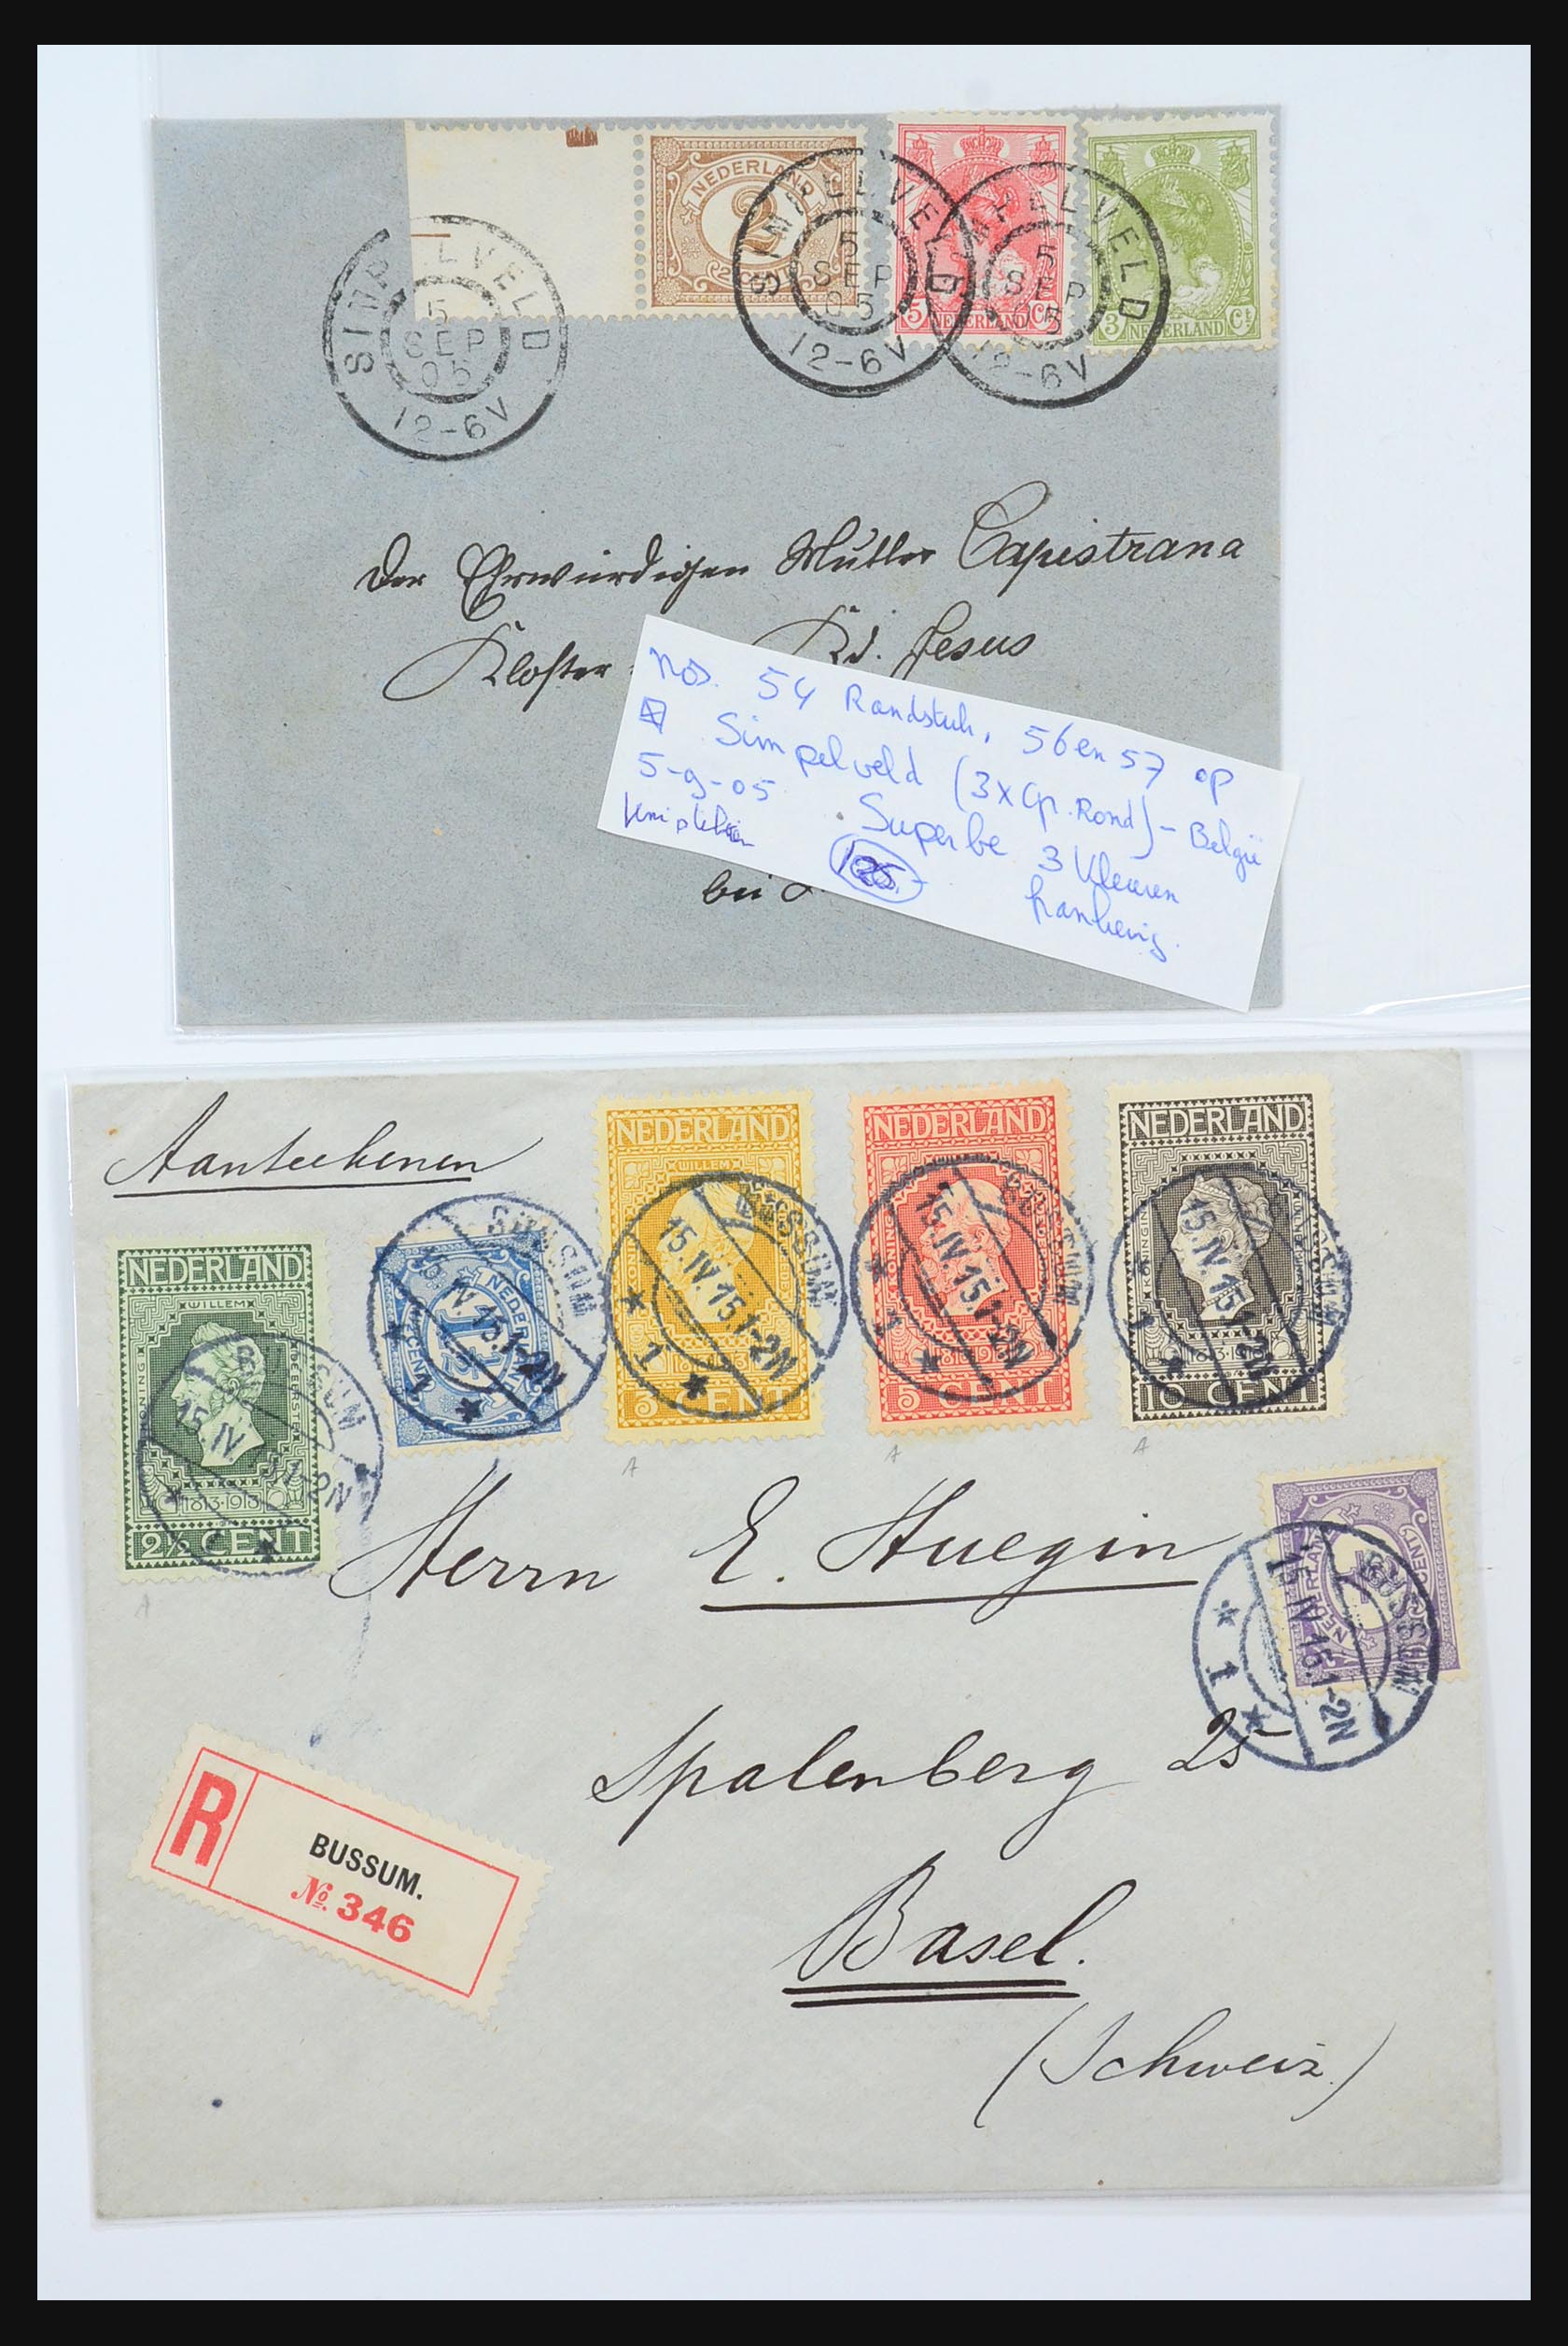 NEDERLAND
2
NEDERLAND
5 Ct
NEDERLAND
3 Ct
SIMPELVELD
5
SEP
05
12-6V
SIMPELVELD
5
SEP
05
12-6V
SIMPELVELD
5
SEP
05
12-6V
Der Ehrwürdigen Mutter Capistrana
Kloster Kd. Jesus
bei
nos. 54 Randstuk, 56 en 57 op
Simpelveld (3x Gr. Rond) - België
5-9-05 Superbe 3 kleuren
frankering.
125,-
Aanteekenen
NEDERLAND
WILLEM
KONING
1813-1913
2½ CENT
BUSSUM
15.IV. 1-2N
NEDERLAND
1½
CENT
BUSSUM
IV.15.1-2N
1
NEDERLAND
WILLEM
KONING
1813-1913
3 CENT
BUSSUM
15.IV.15.1-2N
1
NEDERLAND
KONING
1813-1913
5 CENT
BUSSUM
15.IV.15.1-2N
1
NEDERLAND
KONINGIN
1813-1913
10 CENT
BUSSUM
15.IV.15.1-2N
1
NEDERLAND
CENT
BUSSUM
15.IV.15.1-2N
1
Herrn E. Huegin
Spalenberg 25
R
BUSSUM.
No. 346
Basel.
(Schweiz.)